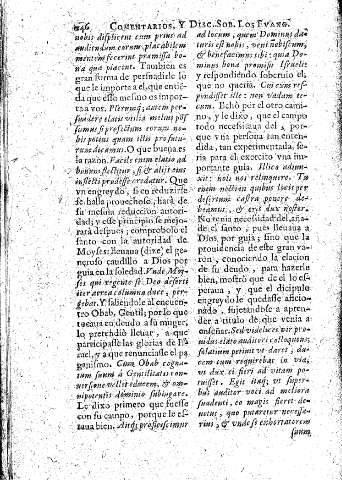 246 COMENTARIOS, Y DISC. SOB. LOS EVANG.
nobis displicent cum prius ad
audiendum eorum placabilem
mentem fecerint præmissa bo-
na quæ placent. Tambien es
gran forma de persuadirle lo
que le importa a el, que entie-
da que esso mesmo es impor-
ta a vos. Plerumq; autem per-
suadere elatis utilia melius pos-
sumus si profectum eorum no-
bis potius quam illis profutu-
rum dicamus. O que buena es
la razon. Facile enim elatio ad
bonum flectitur, si & alijs eius
inflecti prodesse credatur. Que
un engreydo, si en reduzirse
se halla prouechoso, harà de
su mesma reducion autori-
dad; y esse principio se mejo-
rarà despues; comprobolo el
santo con la autoridad de
Moyses: lleuaua (dize) el ge-
neroso caudillo a Dios por
guia en la soledad. Vnde Moy-
ses qui regente se Deo deserti
iter aerea columna duce, per-
gebat. Y saliendole al encuen-
tro Obab, Gentil, por lo que
tocaua en deudo a su muger,
lo pretendiò lleuar, a que
participasse las glorias de Is-
rael, y a que renunciasse el pa-
ganismo. Cum Obab cogna-
tum suum à Gentilitatis con-
uersatione vellet educere, & om-
nipotentis dominio subiugare.
Le dixo primero que fuesse
con su pueblo, porque le es-
taua bien. Atq; proficiscimur
ad locum, quem Dominus da-
turus est nobis, veni nobiscum,
& benefaciamus tibi: quia Do-
minus bona promisit Israeli:
y respondiendo soberuio el,
que no queria. Cui cum res-
pondisset ille: non vadam te-
cum. Echò por el otro cami-
no, y le dixo, que el campo
todo necessitaua del, por-
que una persona tan enten-
dida, tan experimentada, se-
ria para el exercito vna im-
portante guia. Illico adiun-
xit: noli nos relinquere. Tu
enim nostin quibus locis per
desertum castra ponere de-
beamus, & eris dux noster.
No venia necessidad del, aña-
de el santo, pues lleuaua a
Dios, por guia; sino que la
prouidencia de este gran va-
ron, conociendo la elacion
de su deudo, para hazerle
bien, mostrò que de el lo es-
peraua, y que el dicipulo
engreydo le quedasse aficio-
nado, sujetandose a apren-
der a titulo de que venia a
enseñar. Sed videlicet vir pro-
uidus elato auditori colloquens,
solatium petiit vt daret, du-
cem eum requirebat in via,
vt dux ei fieri ad vitam po-
tuisset. Egit itaq; vt super-
bus auditor voci ad meliora
suadenti, eo magis fieret de-
uotus, quo putaretur necessa-
rius, & unde se exhortatorem
suum